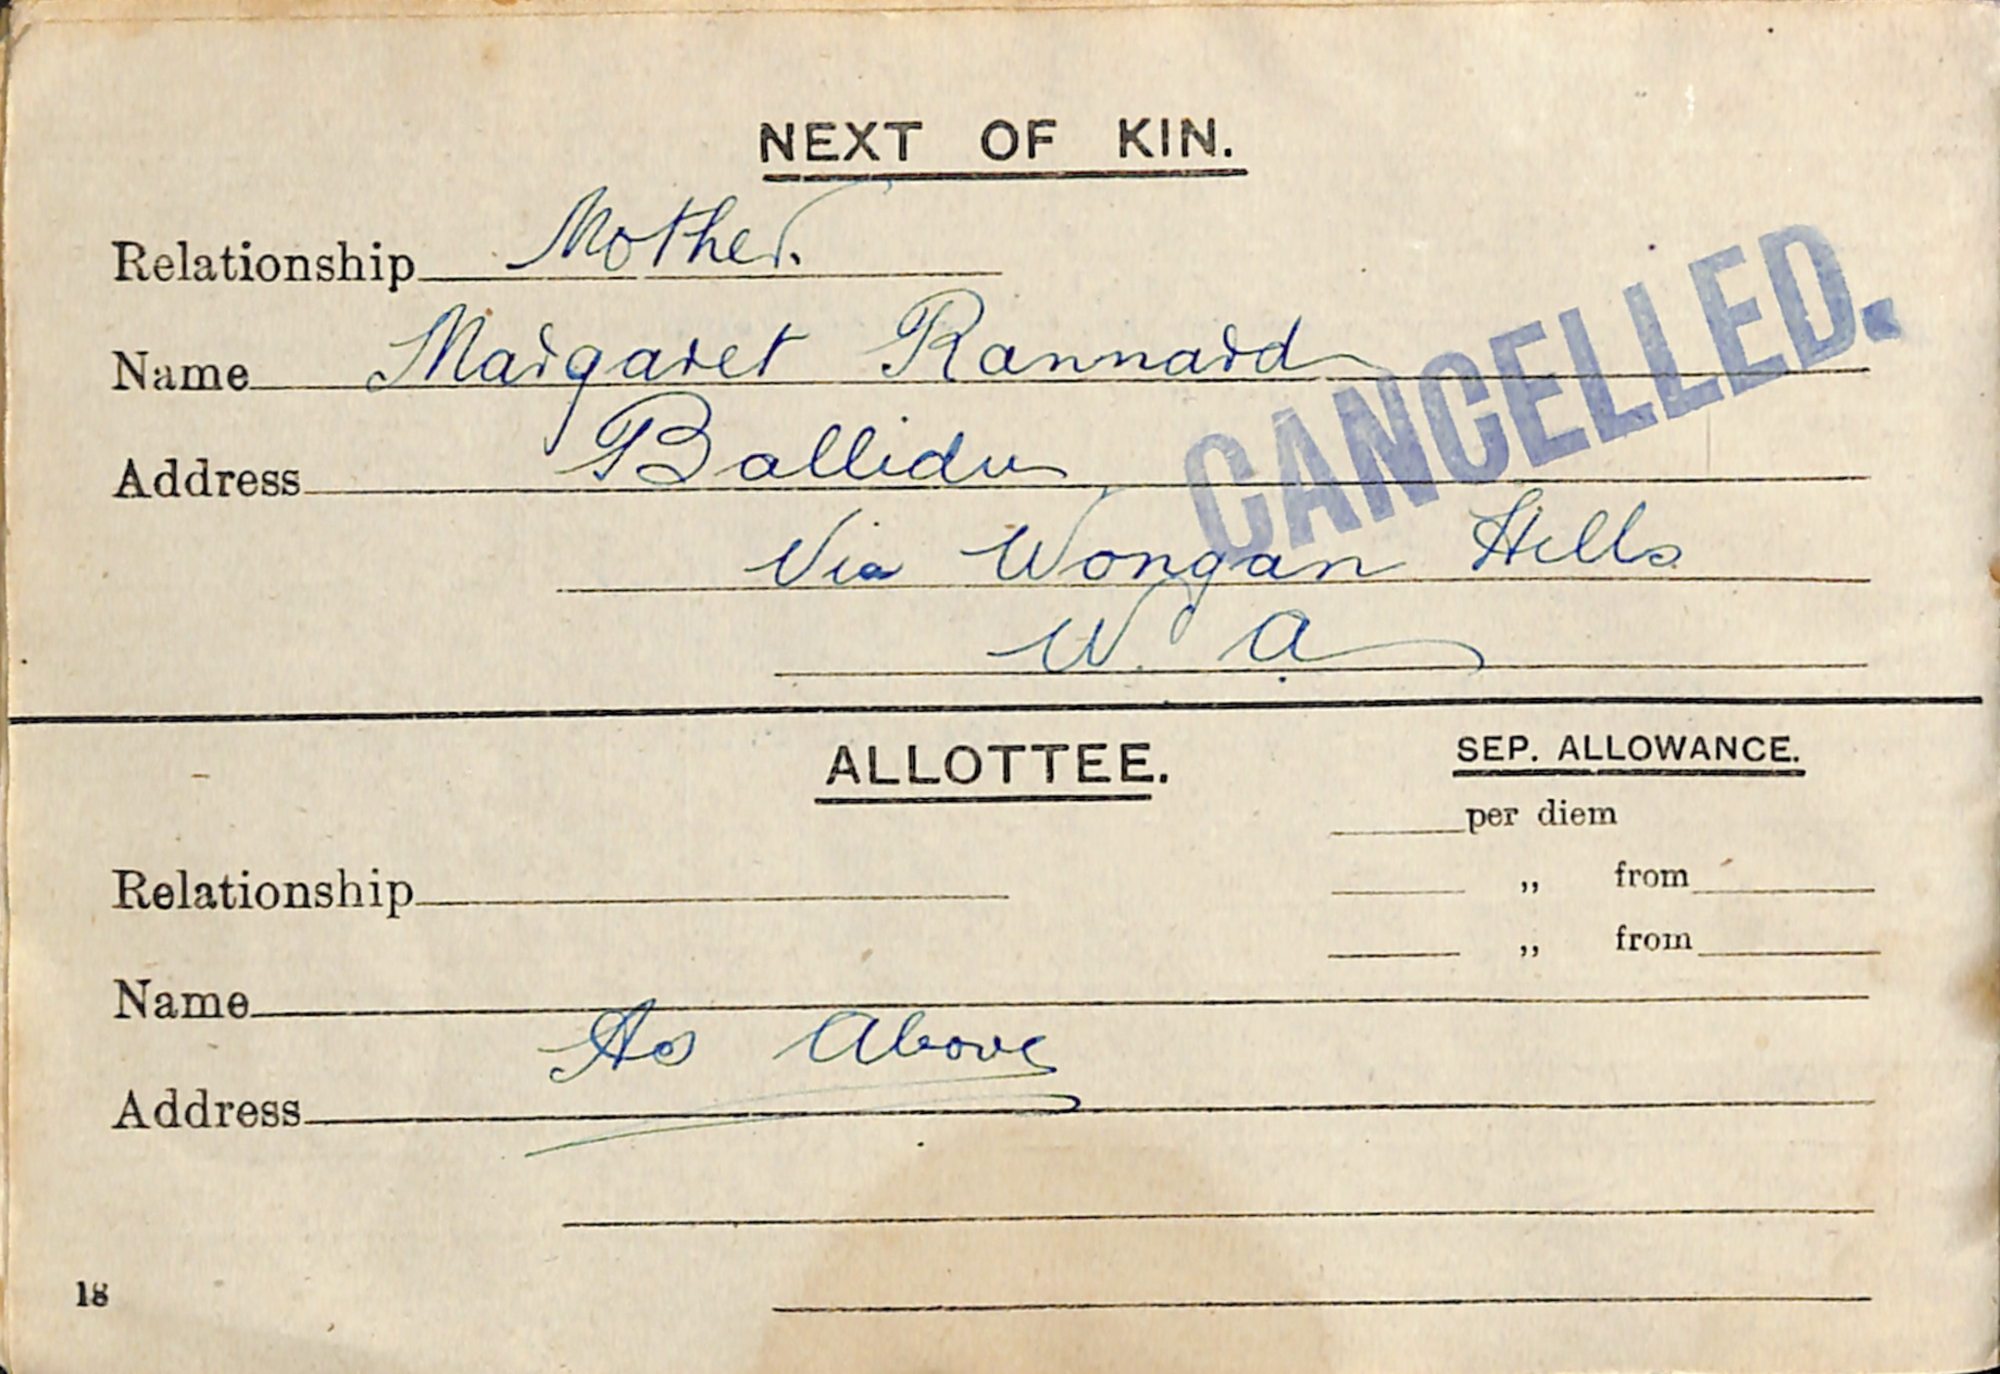 NEXT OF KIN.
Relationship Mother.
Name Margaret Rannard
Address Ballidu
Via Wongan Hills
W. A.
CANCELLED.
ALLOTTEE.
SEP. ALLOWANCE.
per diem
Relationship
„ from
„ from
Name
As Above
Address
18